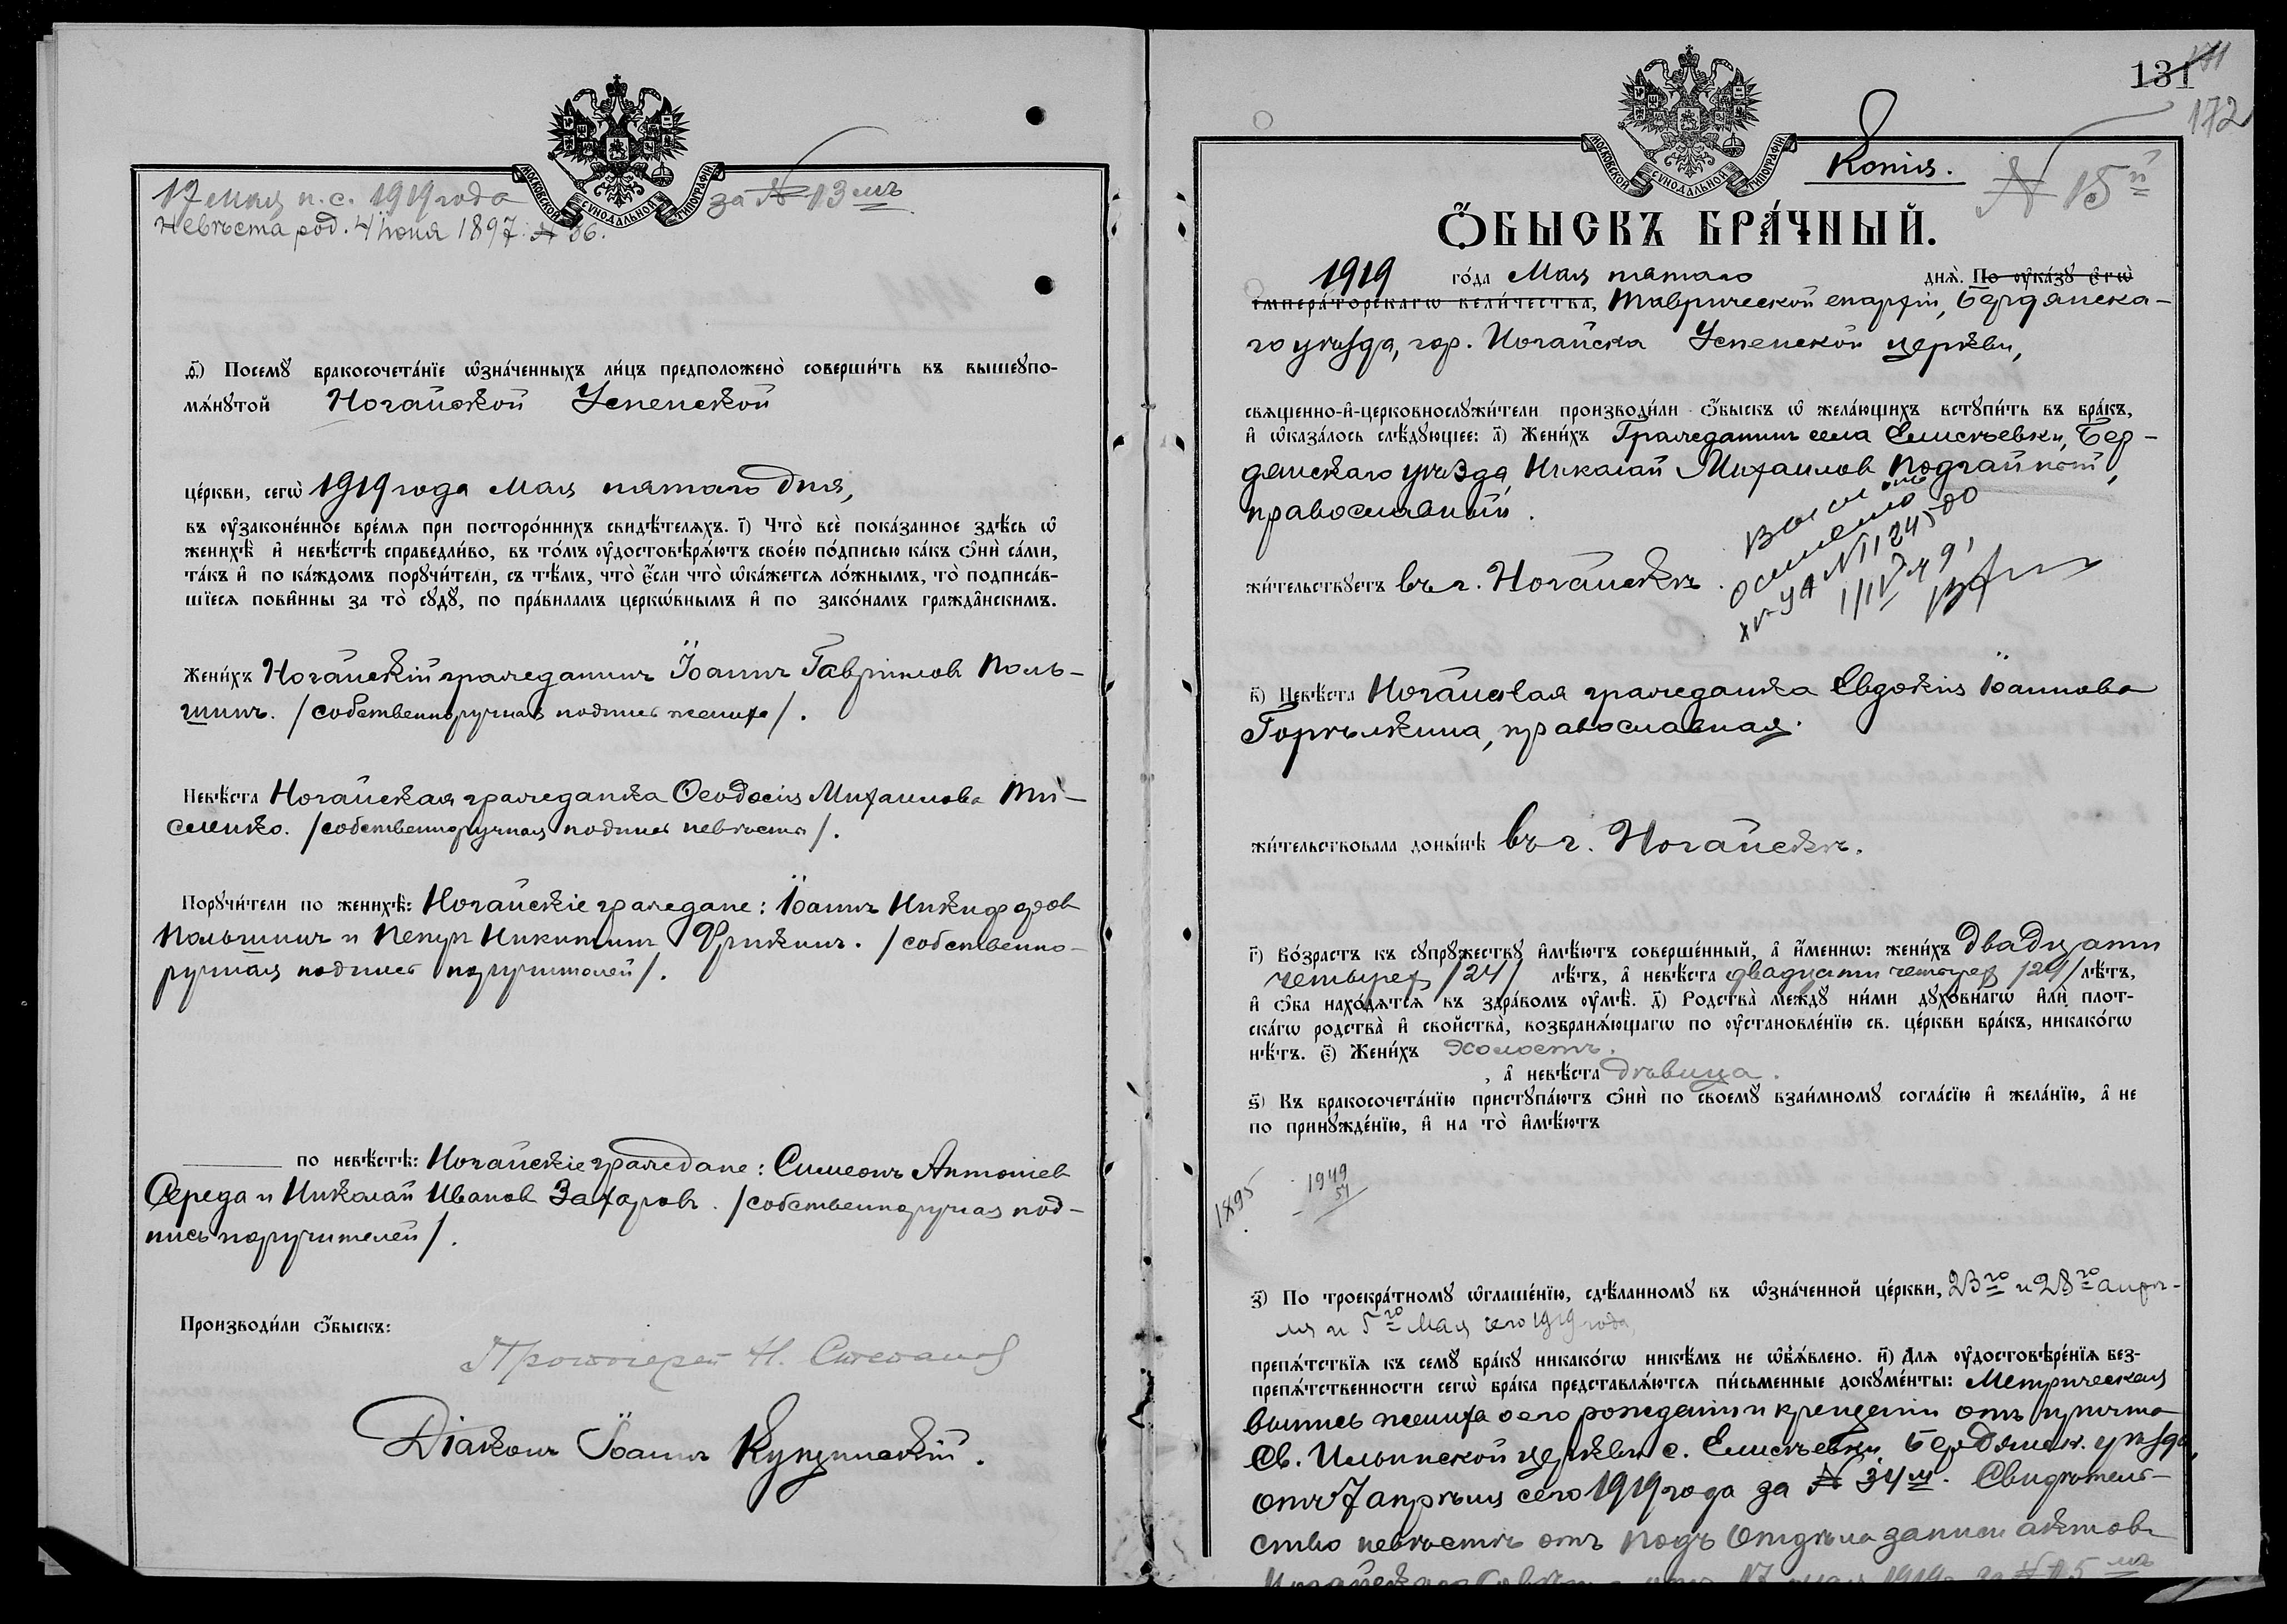 МОСКОВСКОЙ СУНОДАЛЬНОЙ ТИПОГРАФІИ
17 мая н.с. 1919 года за № 13мъ
Невѣста род. 4 іюня 1897. № 86.
ѳ҃) Посемꙋ бракосочета́нїе ѡ҆зна́ченныхъ ли́цъ предположено̀ соверши́ть въ вышеꙋпо-
мѧ́нꙋтой Ногайской Успенской
це́ркви, сегѡ̀ 1919 года Мая пятаго дня,
въ ᲂу҆законе́нное вре́мѧ при посторо́ннихъ свидѣ́телѧхъ. і҃) Что̀ всѐ пока́занное здѣ́сь ѡ҆
женихѣ̀ и҆ невѣ́стѣ справедли́во, въ то́мъ ᲂу҆достовѣрѧ́ютъ свое́ю по́дписью ка́къ ѻ҆нѝ са́ми,
та́къ и҆ по ка́ждомъ порꙋчи́тели, съ тѣ́мъ, что̀ є҆́сли что̀ ѡ҆ка́жетсѧ ло́жнымъ, то̀ подписа́в-
шїесѧ пови́нны за то̀ сꙋдꙋ̀, по пра́виламъ церкѡ́внымъ и҆ по зако́намъ гражда́нскимъ.
Жени́хъ Ногайскій гражданинъ Іоаннъ Гавріиловъ Поль-
шинъ. /собственноручная подпись жениха/.
Невѣ́ста Ногайская гражданка Ѳеодосія Михаилова Ми-
сенко. /собственноручная подпись невѣсты/.
Порꙋчи́тели по женихѣ̀: Ногайскіе граждане: Іоаннъ Никифоровъ
Польшинъ и Петръ Никитинъ Фрикинъ. /собственно-
ручная подпись поручителей/.
по невѣ́стѣ: Ногайскіе граждане: Симеонъ Антоніевъ
Середа и Николай Ивановъ Захаровъ. /собственноручная под-
пись поручителей/.
Производи́ли ѻ҆́быскъ:
Протоіерей Н. Степанов
Діаконъ Іоаннъ Купчинскій.
131
172
МОСКОВСКОЙ СУНОДАЛЬНОЙ ТИПОГРАФІИ
Копія. № 15й
Ѻ҆́БЫСКЪ БРА́ЧНЫЙ.
1919 го́да Мая пятаго днѧ̀. По ᲂу҆ка́зꙋ є҆гѡ̀
і҆мпера́торскагѡ вели́чества, Таврической епархіи, Бердянска-
го уѣзда, гор. Ногайска Успенской церкви,
свѧще́нно-и҆-церковнослꙋжи́тели производи́ли ѻ҆́быскъ ѡ҆ жела́ющихъ встꙋпи́ть въ бра́къ,
и҆ ѡ҆каза́лось слѣ́дꙋющее: а҃) Жени́хъ Гражданинъ села Елисѣевки, Бер-
дянскаго уѣзда, Николай Михаиловъ Подгайный,
православный.
жи́тельствꙋетъ въ г. Ногайскѣ.
в҃) Невѣ́ста Ногайская гражданка Евдокія Іоаннова
Горѣлкина, православная.
жи́тельствовала доны́нѣ въ г. Ногайскѣ.
г҃) Во́зрастъ къ сꙋпрꙋ́жествꙋ и҆мѣ́ютъ соверше́нный, а҆ и҆́меннѡ: жени́хъ двадцати
четырехъ /24/ лѣ́тъ, а҆ невѣ́ста двадцати четырехъ /24/ лѣ́тъ,
и҆ ѻ҆́ба нахо́дѧтсѧ въ здра́вомъ ᲂу҆мѣ̀. д҃) Родства̀ междꙋ̀ ни́ми дꙋхо́внагѡ и҆лѝ пло́т-
скагѡ родства̀ и҆ сво́йства̀, возбранѧ́ющагѡ по ᲂу҆становле́нїю св. це́ркви бра́къ, никако́гѡ
нѣ́тъ. є҃) Жени́хъ Холостъ.
, а҆ невѣ́ста дѣвица.
ѕ҃) Къ бракосочета́нїю пристꙋпа́ютъ ѻ҆нѝ по своемꙋ̀ взаи́мномꙋ согла́сїю и҆ жела́нїю, а҆ не
по принꙋжде́нїю, и҆ на то̀ и҆мѣ́ютъ
1895
1949
з҃) По троекра́тномꙋ ѡ҆глаше́нїю, сдѣ́ланномꙋ въ ѡ҆зна́ченной це́ркви, 23го и 28го апрѣ-
ля и 5го Мая сего 1919 года,
препѧ́тствїѧ къ семꙋ̀ бра́кꙋ никако́гѡ никѣ́мъ не ѡ҆б̾ѧ́влено. и҃) Для ᲂу҆достовѣре́нїѧ без-
препѧ́тственности сегѡ̀ бра́ка представлѧ́ютсѧ пи́сьменные докꙋме́нты: Метрическая
выпись жениха о его рожденіи и крещеніи отъ причта
Св. Ильинской церкви с. Елисѣевки, Бердянск. уѣзда,
отъ 7 апрѣля сего 1919 года за № 34м. Свидѣтель-
ство невѣстѣ отъ Подъ Отдѣла записи актовъ